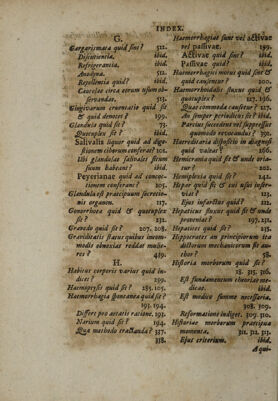 INDEX.
G.
Gargarismata quid sint? 512.
Discutientia. ibid.
Refrigerantia. ibid.
Anodyna. 512.
Repellentia quid? ibid.
Cautelae circa eorum usum ob-
servandae. 513.
Gingivarum cruentatio quid sit
& quid denotet? 199.
Glandula quid sit? 73.
Quotuplex sit? ibid.
Salivalis liquor quid ad dige-
stionem ciborum conferat? 101.
Ubi glandulae salivales situm
suum habeant? ibid.
Peyerianae quid ad concoc-
tionem conferant? 105.
Glandula est praecipuum secretio-
nis organon. 117.
Gonorrhoea quid & quotuplex
sit? 197.
Gravedo quid sit? 207. 208.
Graviditatis status quibus incom-
modis obnoxias reddat mulie-
res? 439.
H.
Habitus corporis varius quid in-
dicet? 299.
Haemoptysis quid sit? 185. 105.
Haemorrhagia spontanea quid sit?
193. 194.
Differt pro aetatis ratione. 193.
Narium quid sit? 194.
Qua methodo tractanda? 337.
338.
Haemorrhagiae sunt vel activae
vel passivae. 199.
Activae quid sint? ibid.
Passivae quid? ibid.
Haemorrhagici motus quid sint &
quid causentur? 200.
Haemorrhoidalis fluxus quid &
quotuplex? 127. 196.
Quae commoda causetur? 127.
An semper periodicus sit? ibid.
Parcius succedens vel suppressus
quomodo revocandus? 392.
Haereditaria dispositio in diagnosi
quid valeat? 266.
Hemicrania quid sit & unde oria-
tur? 202.
Hemiplexia quid sit? 242.
Hepar quid sit & cui usui inser-
viat? 122.
Ejus infarctus quid? 122.
Hepaticus fluxus quid sit & unde
proveniat? 197. 123.
Hepatites quid sit? 125.
Hippocrates an principiorum ia-
dictorum mechanicorum sit au-
thor? 58.
Historia morborum quid sit?
18. 315. 316.
Est fundamentum theoriae me-
dicae. ibid.
Est medico summe necessaria.
308. 309.
Reformatione indiget. 309. 310.
Historiae morborum praecipua
momenta. 311. 312. 313.
Ejus criterium. ibid.
A qui-